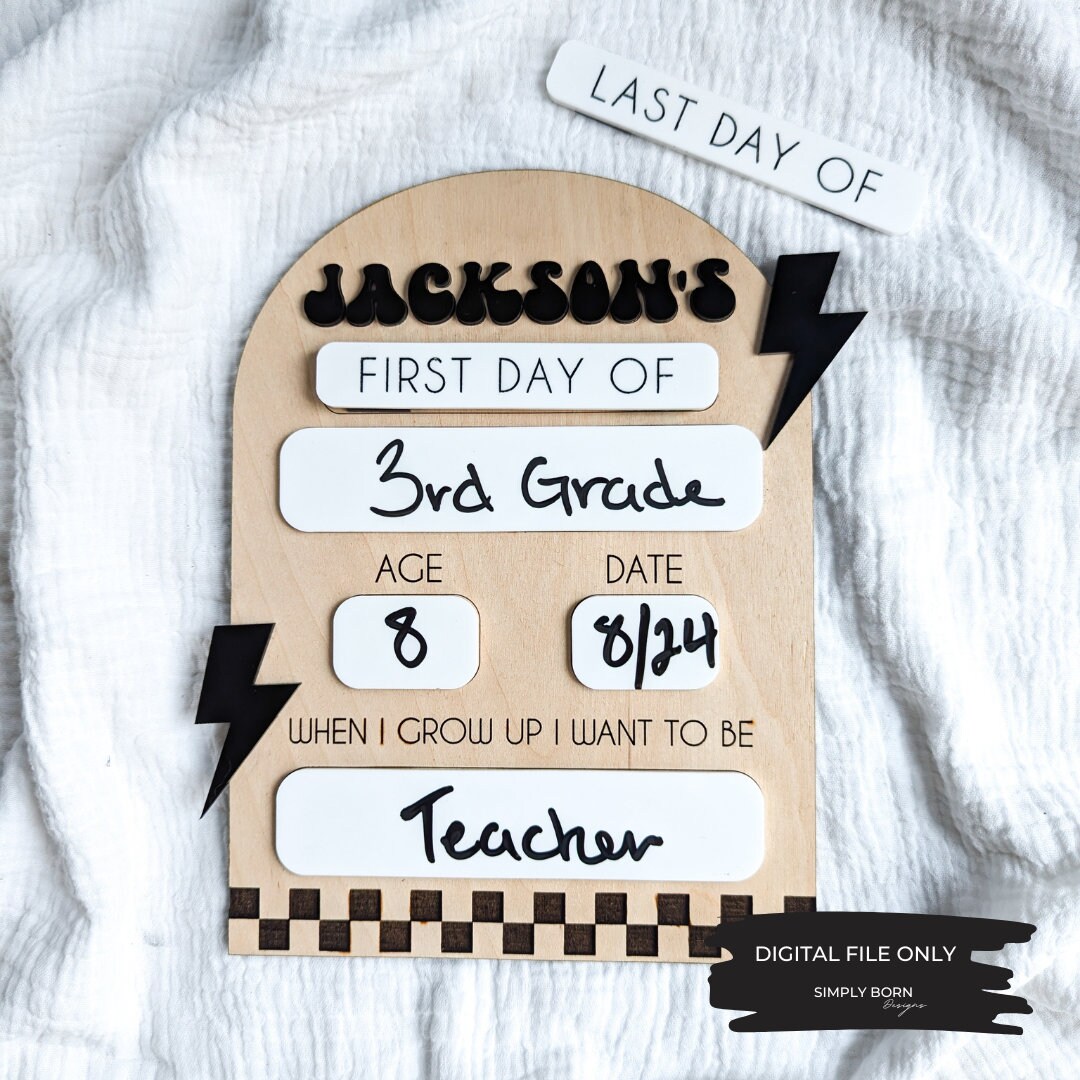 LAST DAY OF
JACKSON'S
FIRST DAY OF
3rd Grade
AGE
DATE
8
8/24
WHEN I GROW UP I WANT TO BE
Teacher
DIGITAL FILE ONLY
SIMPLY BORN
Designs